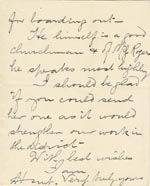 for boarding out—
He himself is a good
churchman & of
he speaks most highly
I should be glad
if you could send
her one as it would
strengthen our work in
the district—
With best wishes
I am
Very truly yours